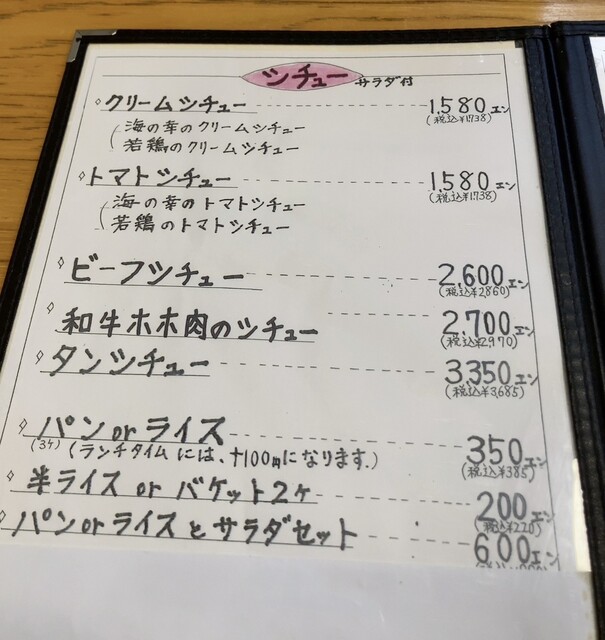 シチュー サラダ付
◇クリームシチュー 1,580エン
(税込¥1738)
海の幸のクリームシチュー
若鶏のクリームシチュー
◇トマトシチュー 1,580エン
(税込¥1738)
海の幸のトマトシチュー
若鶏のトマトシチュー
◇ビーフシチュー 2,600エン
(税込¥2860)
◇和牛ホホ肉のシチュー 2,700エン
(税込¥2970)
◇タンシチュー 3,350エン
(税込¥3,685)
◇パンorライス 350エン
(3ケ) (ランチタイムには、+100円になります。) (税込¥385)
◇半ライス or バケット2ヶ 200エン
(税込¥220)
◇パンorライスとサラダセット 600エン